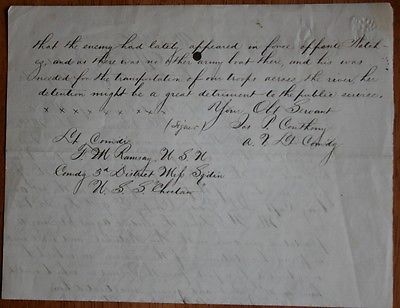 that the enemy had lately appeared in force opposite Natch-
ez, and as there was no other army boat there, and his was
needed for the transportation of our troops across the river, her
detention might be a great detriment to the public service.
x x x x x x x x Your Obt Servant
(Signed) Jas P. Couthony
Lt Comdr A. V. Lt Comdg
F M Ramsay, U. S. N
Comdg 3d District Miss Sqdn
U. S. S. Choctaw